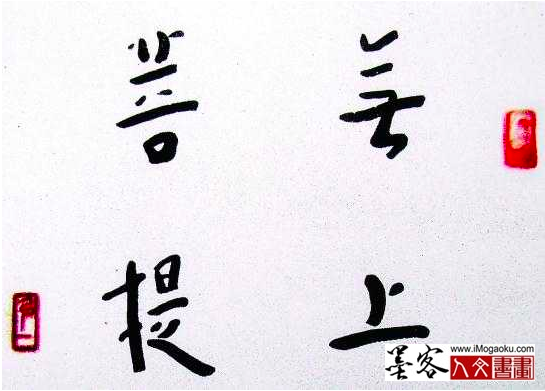 無上
菩提
www.iMogaoku.com
墨客
人文書畫